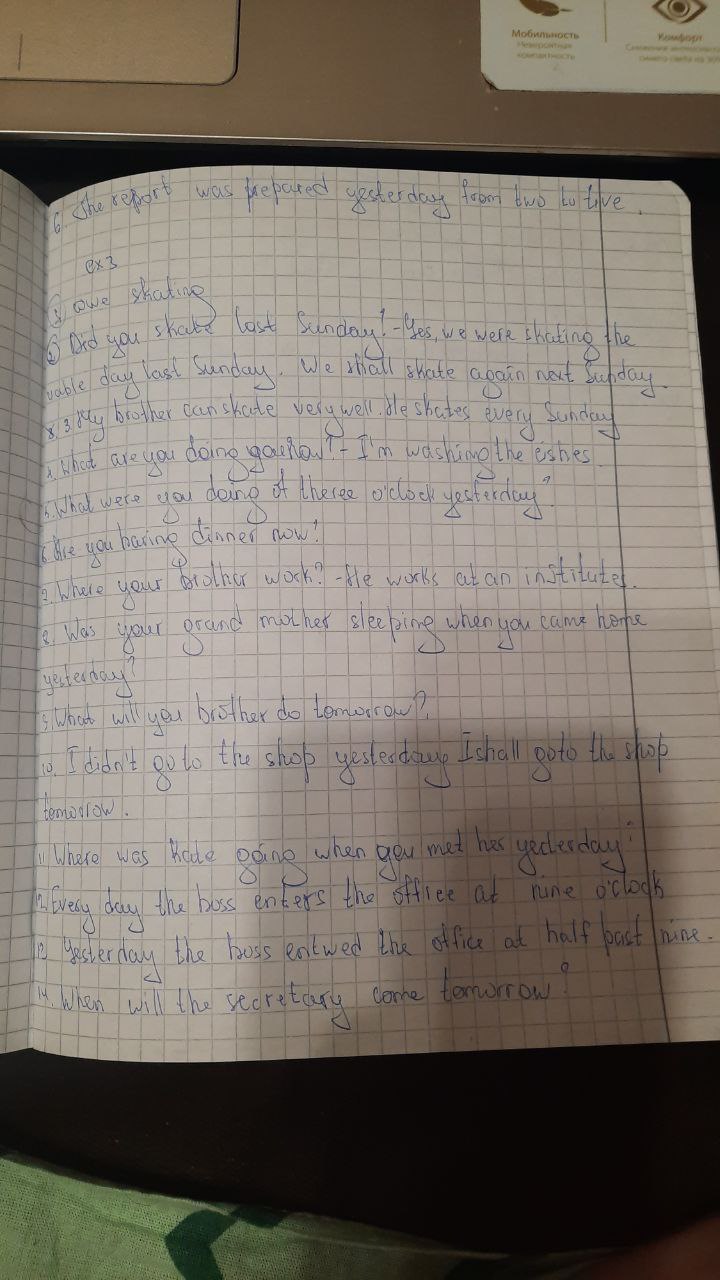 Мобильность
Невероятная
компактность
Комфорт
6. The report was prepared yesterday from two to five.
ex3
1) owe skating
2) Did you skate last Sunday? - Yes, we were skating the
whole day last Sunday. We shall skate again next Sunday.
3. My brother can skate very well. He skates every Sunday
4. What are you doing now? - I'm washing the eishes.
5. What were you doing at theree o'clock yesterday?
6. Are you having dinner now?
7. Where your brother work? - He works at an institute.
8. Was your grand mother sleeping when you came home
yesterday?
9. What will you brother do tomorrow?
10. I didn't go to the shop yesterday I shall go to the shop
tomorrow.
11 Where was Kate going when you met her yesterday?
12. Every day the boss enters the office at nine o'clock
13 Yesterday the boss entwed the office at half past nine.
14. When will the secretary come tomorrow?